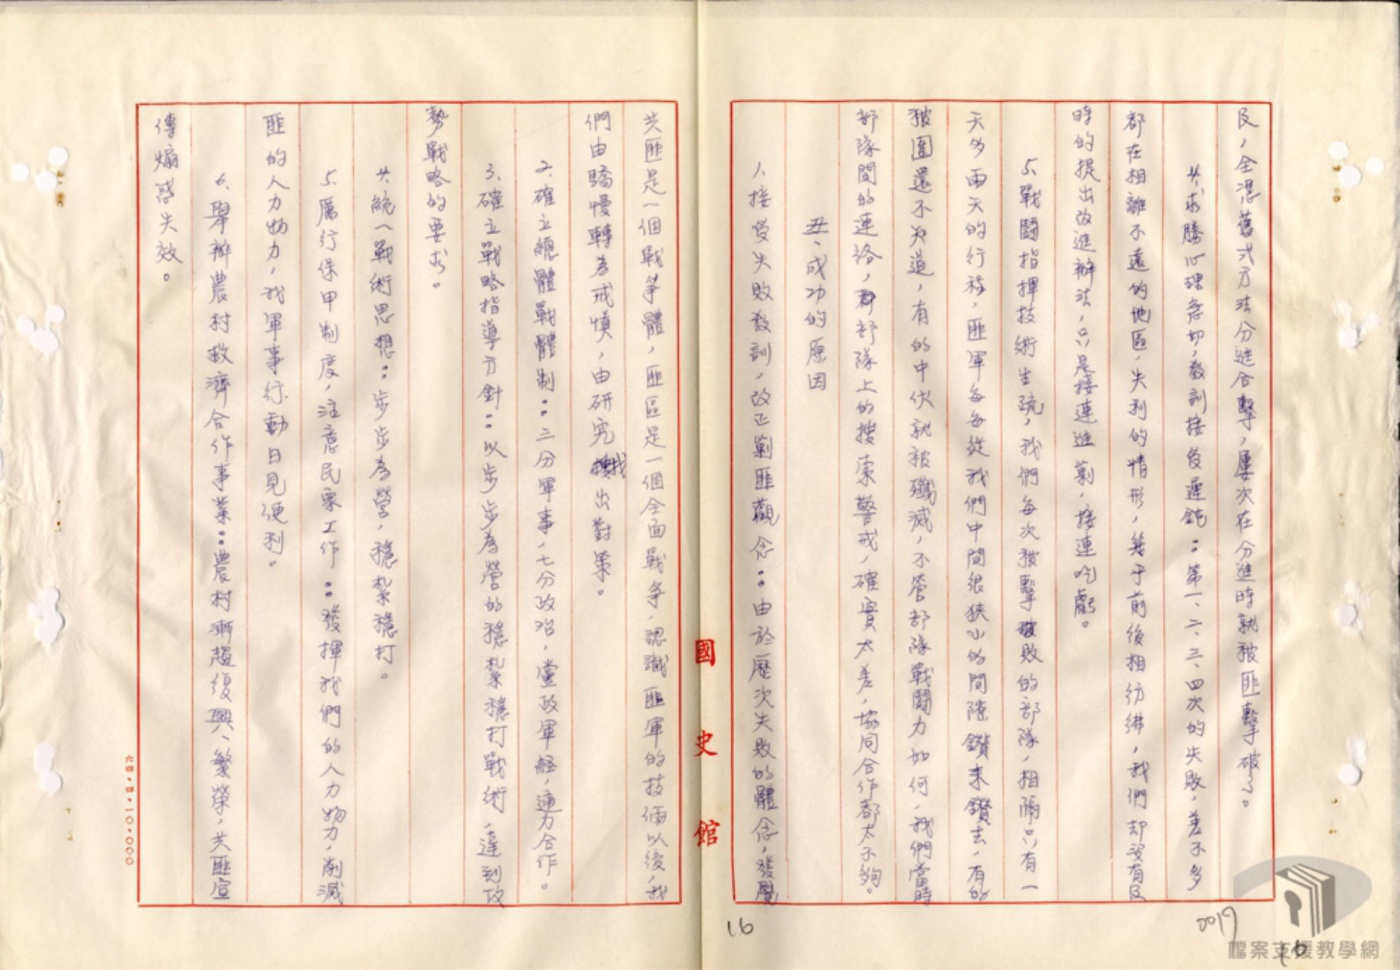 反，全混舊式方法分進合擊，屢次在分進時就被匪擊破了。
4.求勝心理急切，教訓接受遲鈍：第一、二、三、四次的失敗，差不多
都在相離不遠的地區，失利的情形，幾乎前後相彷彿，我們却沒有及
時的提出改進辦法，只是接連進剿，接連吃虧。
5.戰鬪指揮技術生疏，我們每次被擊破敗的部隊，相隔只有一
天多兩天的行程，匪軍每每從我們中間很狹小的間隙鑽來鑽去，有的
被圍還不知道，有的中伏就被殲滅，不管部隊戰鬪力如何，我們當時
部隊間的連絡，部隊上的搜索警戒，確實太差，協同合作都太不夠。
丑、成功的原因
1.接受失敗教訓，改正剿匪觀念：由於歷次失敗的體念，發覺
共匪是一個戰爭體，匪區是一個全面戰爭，認識匪軍的技倆以後，我
們由驕慢轉為戒慎，由研究找出對策。
2.確立總體戰體制：三分軍事，七分政治，黨政軍經，通力合作。
3.確立戰略指導方針：以步步為營的穩紮穩打戰術，達到攻
勢戰略的要求。
4.統一戰術思想：步步為營，穩紮穩打。
5.厲行保甲制度，注意民眾工作：發揮我們的人力物力，削減
匪的人力物力，我軍事行動日見便利。
6.舉辦農村救濟合作事業：農村漸趨復興、繁榮，共匪宣
傳煽惑失效。
國史館
六四・四・一〇・〇〇〇
16
2017
16
檔案支援教學網